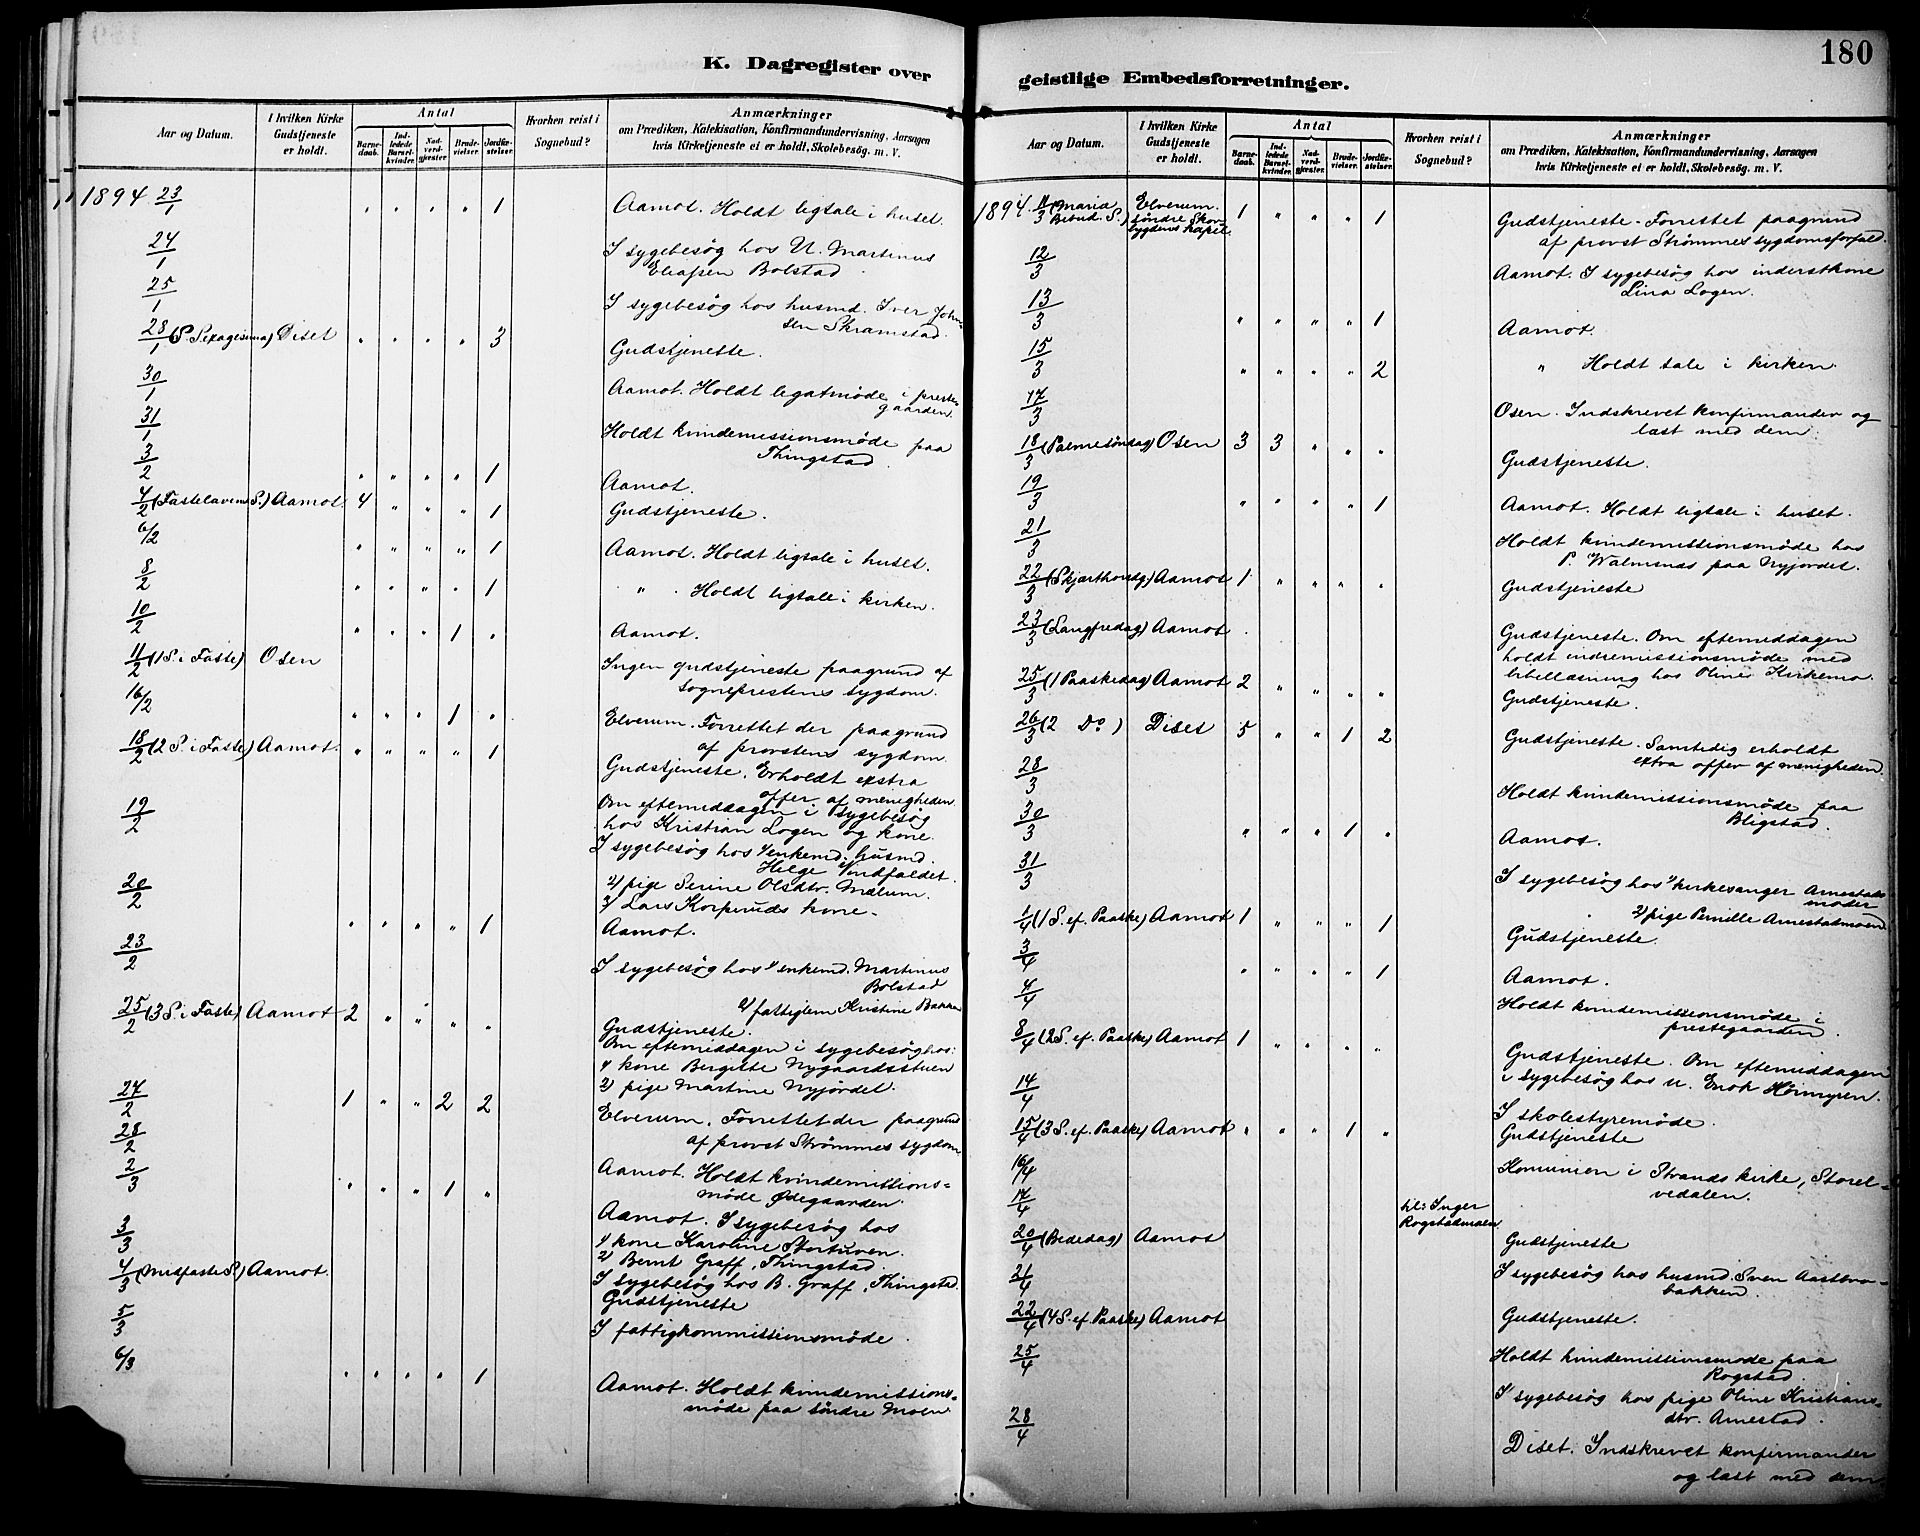 180
K. Dagregister over
geistlige Embedsforretninger.
Aar og Datum.
I hvilken Kirke Gudstjeneste er holdt.
Antal
Barnedaab.
Indledede Barselkvinder.
Nadverdgjester.
Brudevielser.
Jordfæstelser.
Hvorhen reist i Sognebud?
Anmærkninger
om Prædiken, Katekisation, Konfirmandundervisning, Aarsagen
hvis Kirketjeneste ei er holdt, Skolebesög. m. V.
1894 23/1 " " " " 1 Aamot. Holdt ligtale i huset.
24/1 I sygebesøg hos U. Martinus
Eliassen Bolstad
25/1 I sygebesøg hos husmd. Iver John-
sen Skramstad.
28/1 (S. Sexagesima) Diset " " " " 3 Gudstjeneste.
30/1 Aamot. Holdt legatmøde i preste-
gaarden.
31/1 Holdt kvindemissionsmøde paa
Thingstad.
3/2 " " " " 1 Aamot.
4/2 (Fastelavens S.) Aamot. 4 " " " 1 Gudstjeneste.
6/2 " " " " 1 Aamot. Holdt ligtale i huset.
8/2 " " " " 1 " . Holdt ligtale i kirken.
10/2 " " " 1 " Aamot.
11/2 (1 S. i Faste) Osen Ingen gudstjeneste paagrund af
sogneprestens sygdom.
16/2 " " " 1 " Elverum. Forrettet der paagrund
af provstens sygdom.
18/2 (2 S. i Faste) Aamot. " " " " 1 Gudstjeneste. Erholdt extra
offer af menigheden.
Om eftermiddagen i sygebesøg
hos Kristian Logen og kone.
19/2 I sygebesøg hos 1/ enkemd. husmd.
Helge Vindfaldet.
2/ pige Serine Olsdtr. Mælum.
3/ Lars Korperuds kone.
20/2 " " " " 1 Aamot.
23/2 I sygebesøg hos 1/ enkemd. Martinus
Bolstad
2/ fattiglem Kristine Bakken
25/2 (3 S. i Faste) Aamot 2 " " " " Gudstjeneste.
Om eftermiddagen i sygebesøg hos:
1/ kone Bergitte Nygaardsstuen
2/ pige Martine Nyjordet.
27/2 1 " " 2 2 Elverum. Forrettet der paagrund
af provst Strømmes sygdom.
28/2 Aamot. Holdt kvindemissions-
møde, Ødegaarden.
2/3 " " " 1 " Aamot. I sygebesøg hos
1/ kone Karoline Stortuven.
2/ Bernt Graff, Thingstad.
3/3 I sygebesøg hos B. Graff, Thingstad.
4/3 (Midfaste S.) Aamot. Gudstjeneste
5/3 I fattigkommissionsmøde.
6/3 " " " " 1 Aamot. Holdt kvindemissions-
møde paa søndre Moen.
Aar og Datum.
I hvilken Kirke Gudstjeneste er holdt.
Antal
Barnedaab.
Indledede Barselkvinder.
Nadverdgjester.
Brudevielser.
Jordfæstelser.
Hvorhen reist i Sognebud?
Anmærkninger
om Prædiken, Katekisation, Konfirmandundervisning, Aarsagen
hvis Kirketjeneste ei er holdt, Skolebesög. m. V.
1894. 11/3 (Maria Bebud. S.) Elverum. søndre Skovbygdens kapel. 1 " " " 1 Gudstjeneste. Forrettet paagrund
af provst Strømmes sygdomsforfald.
12/3 Aamot. I sygebesøg hos inderstkone
Lina Logen.
13/3 " " " " 1 Aamot.
15/3 " " " " 2 " Holdt tale i kirken.
17/3 Osen. Indskrevet konfirmander og
læst med dem.
18/3 (Palmesøndag) Osen 3 3 " " " Gudstjeneste.
19/3 " " " " 1 Aamot. Holdt ligtale i huset.
21/3 Holdt kvindemissionsmøde hos
P. Walmsnæs paa Nyjordet.
22/3 (Skjærthorsdg) Aamot 1 " " " " Gudstjeneste
23/3 (Langfredag) Aamot Gudstjeneste. Om eftermiddagen
holdt indremissionsmøde med
bibellæsning hos Oline Kirkemo.
25/3 (1 Paaskedag) Aamot 2 " " " " Gudstjeneste.
26/3 (2 Do) Diset 5 " " 1 2 Gudstjeneste. Samtidig erholdt
extra offer af menigheden.
28/3 Holdt kvindemissionsmøde paa
Bligstad.
30/3 " " " 1 " Aamot.
31/3 I sygebesøg hos 1/ kirkesanger Arnestads
moder
2/ pige Pernille Arnestadmoen.
1/4 (1 S. ef. Paaske) Aamot 1 " " " 1 Gudstjeneste.
3/4 " " " " 1 Aamot.
4/4 Holdt kvindemissionsmøde i
prestegaarden.
8/4 (2 S. ef. Paaske) Aamot 1 " " " " Gudstjeneste. Om eftermiddagen
i sygebesøg hos U. Enok Hørnyren.
14/4 I skolestyremøde.
15/4 (3 S. ef. Paaske) Aamot " " " 1 " Gudstjeneste
16/4 Komunion i Strands kirke, Storel-
vedalen.
17/4 til: Inger
Rogstadmoen
20/4 (Bededag) Aamot Gudstjeneste
21/4 I sygebesøg hos husmd. Sven Aastbro-
bakken.
22/4 (4 S. ef. Paaske) Aamot Gudstjeneste.
25/4 Holdt kvindemissionsmøde paa
Rogstad.
I sygebesøg hos pige Oline Kristians-
dtr. Arnestad.
28/4 Diset. Indskrevet konfirmander
og læst med dem